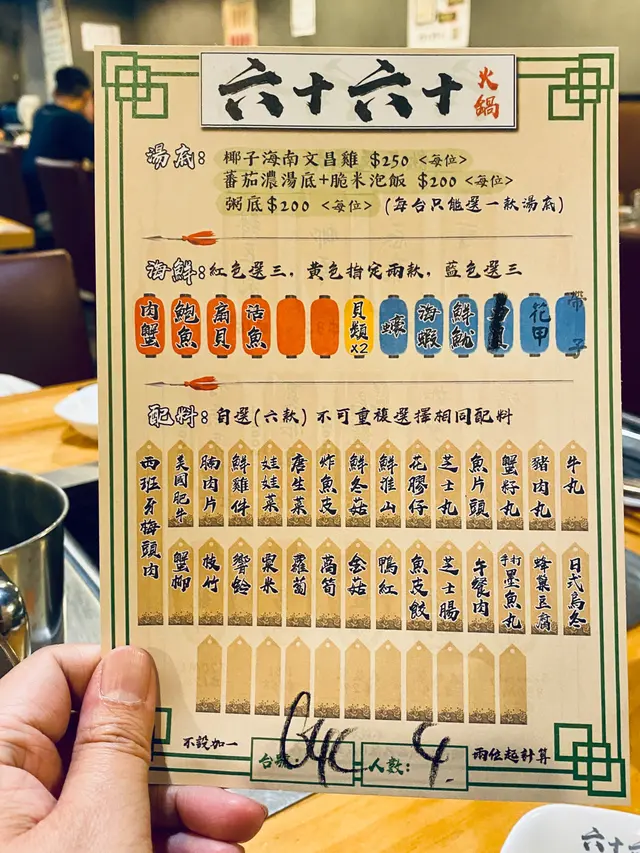 六十六十火鍋
湯底：椰子海南文昌雞 $250 <每位>
蕃茄濃湯底+脆米泡飯 $200 <每位>
粥底$200 <每位> (每台只能選一款湯底)
海鮮：紅色選三，黃色指定兩款，藍色選三
肉蟹 鮑魚 扇貝 活魚 貝類x2 蠔 海蝦 鮮魷 花甲 帶子
配料：自選(六款) 不可重複選擇相同配料
西班牙梅頭肉 美國肥牛 腩肉片 鮮雞件 娃娃菜 唐生菜 炸魚皮 鮮冬菇 鮮淮山 花膠仔 芝士丸 魚片頭 蟹籽丸 豬肉丸 牛丸
蟹柳 枝竹 響鈴 粟米 蘿蔔 萵筍 金菇 鴨紅 魚皮餃 芝士腸 午餐肉 手打墨魚丸 蜂巢豆腐 日式烏冬
不設加一
台號：
人數：4
兩位起計算
六十六